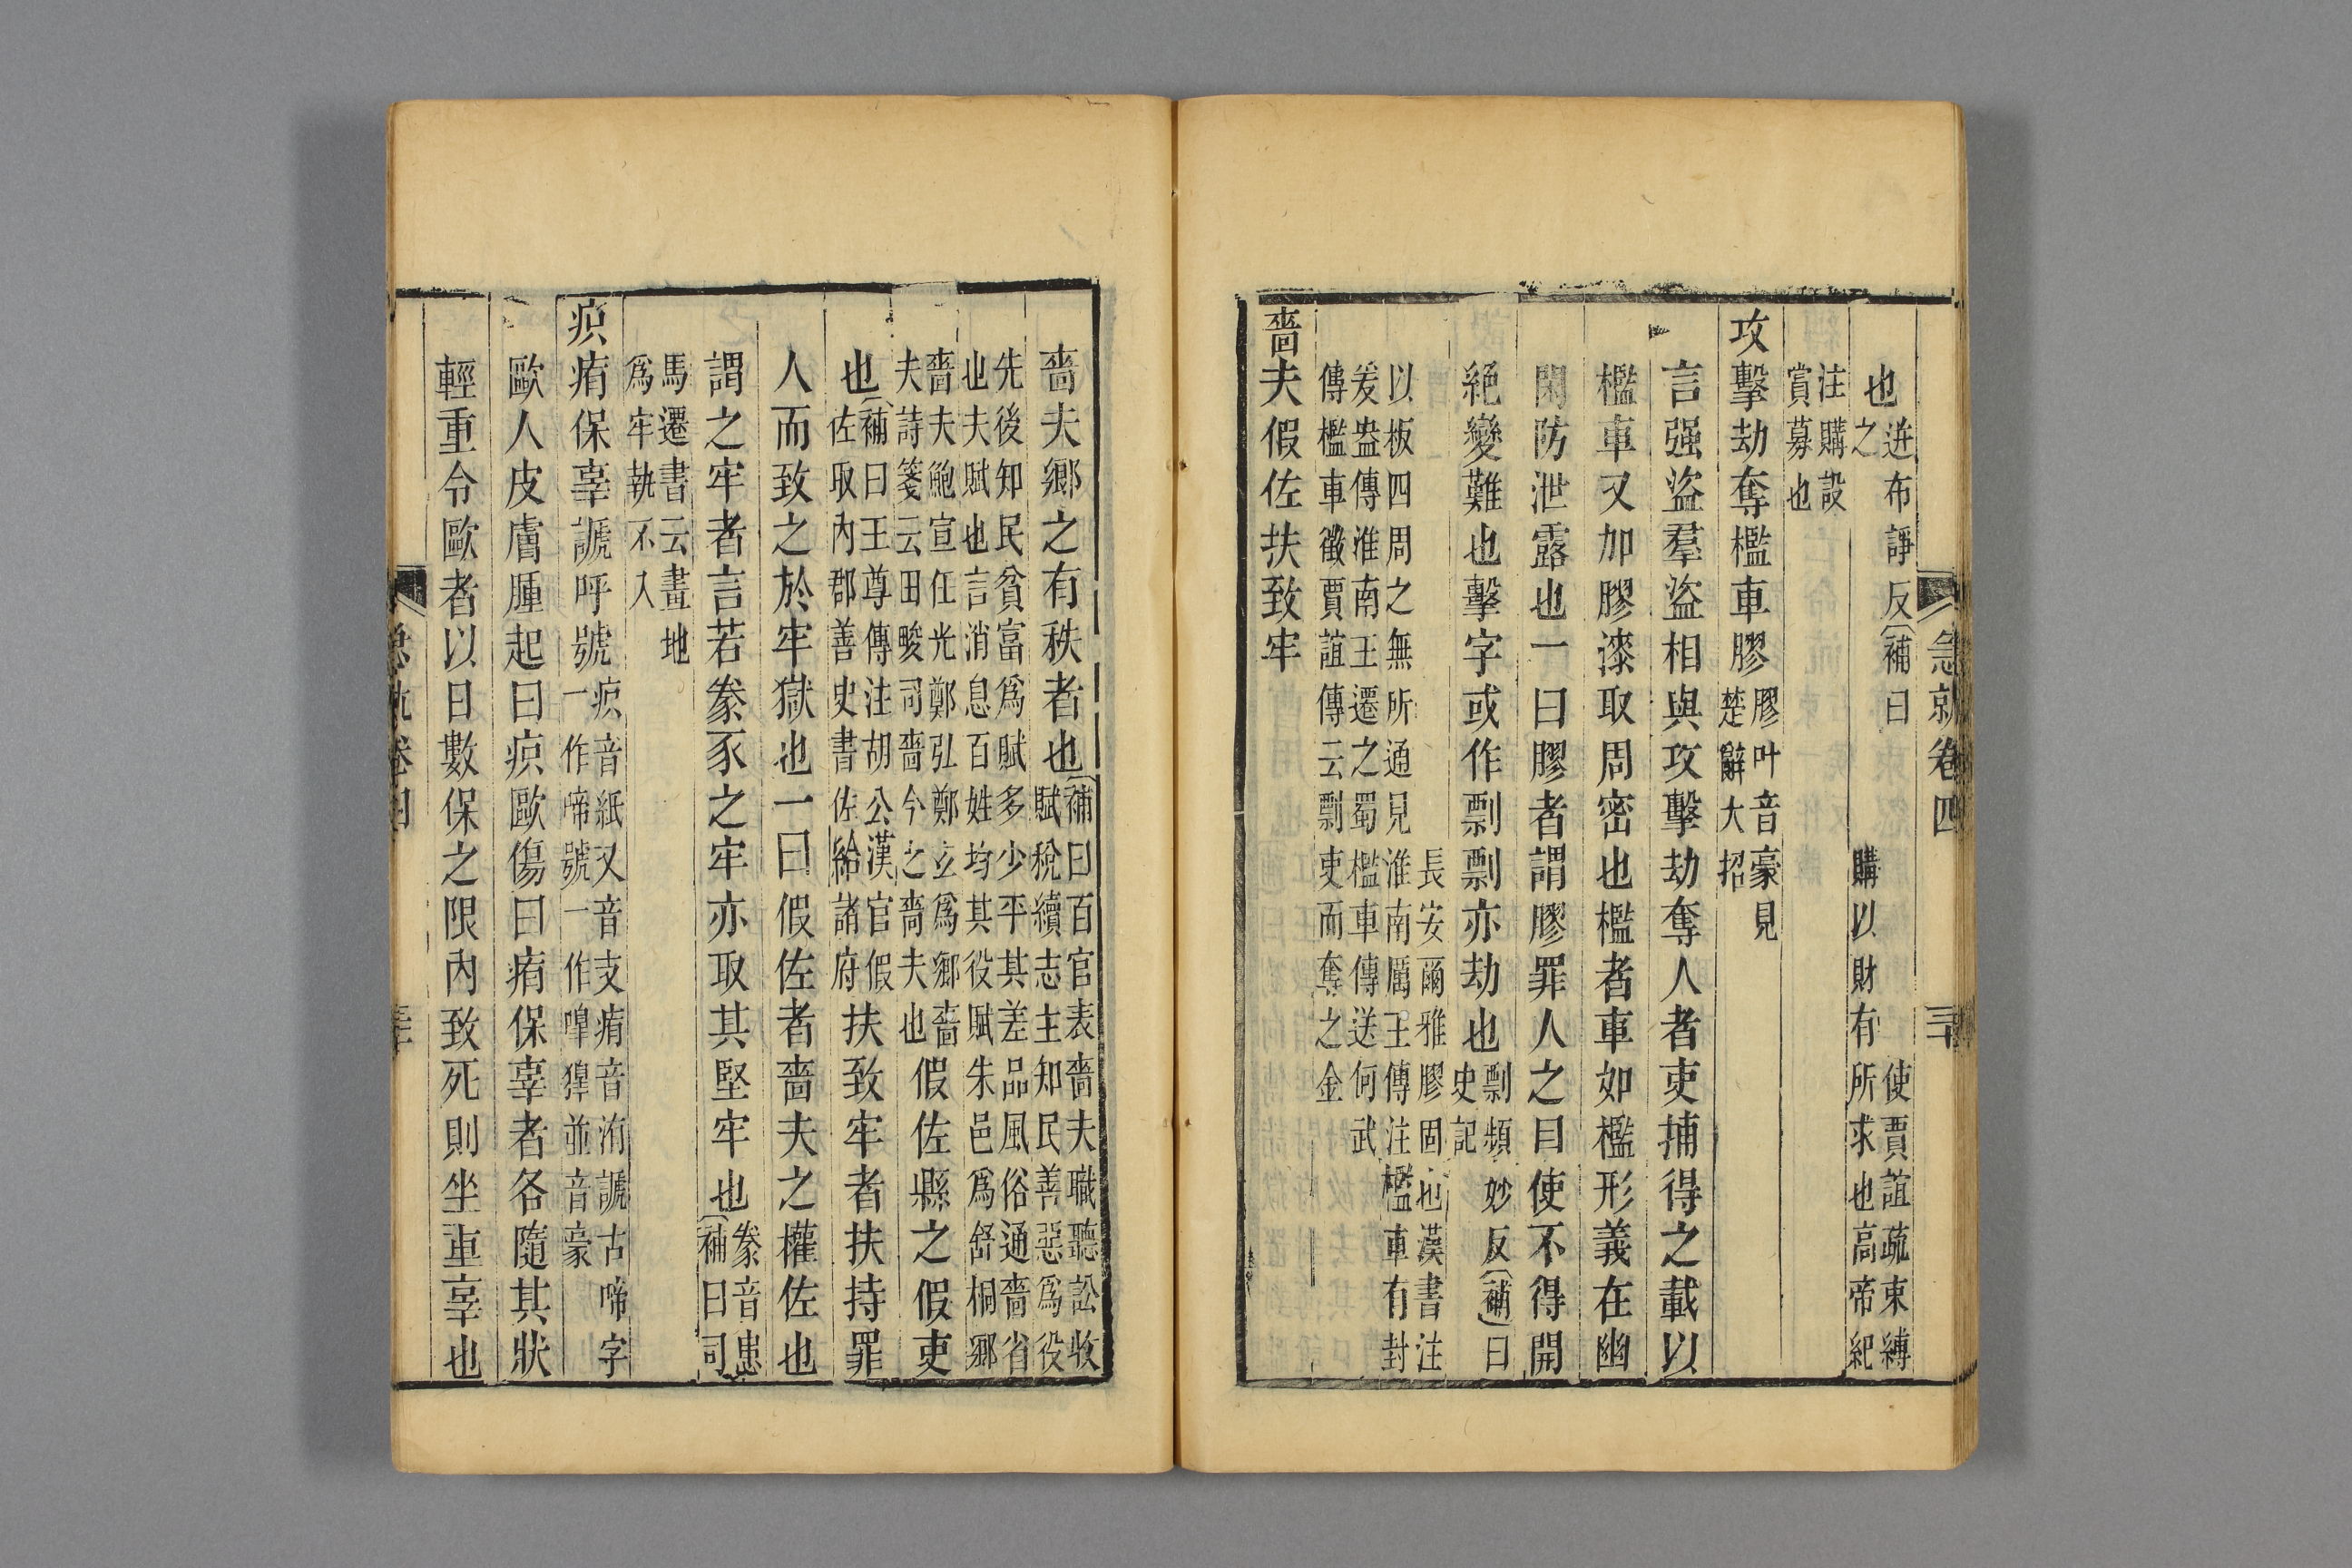 急就卷四 三十
也迸布諍反補曰使賈誼疏束縛
之購以財有所求也高帝紀
注購設
賞募也
攻擊劫奪檻車膠膠叶音豪見
楚辭大招
言强盜羣盜相與攻擊劫奪人者吏捕得之載以
檻車又加膠漆取周密也檻者車如檻形義在幽
閑防泄露也一曰膠者謂膠罪人之目使不得開
絕變難也擊字或作剽剽亦劫也剽頻妙反補曰
史記
長安爾雅膠固也漢書注
以板四周之無所通見淮南厲王傳注檻車有封
爰盎傳淮南王遷之蜀檻車傳送何武
傳檻車徵賈誼傳云剽吏而奪之金
嗇夫假佐扶致牢
嗇夫鄉之有秩者也補曰百官表嗇夫職聽訟收
賦稅續志主知民善惡爲役
先後知民貧富爲賦多少平其差品風俗通嗇省
也夫賦也言消息百姓均其役賦朱邑爲舒桐鄉
嗇夫鮑宣任光鄭弘鄭玄爲鄉嗇
夫詩箋云田畯司嗇今之嗇夫也假佐縣之假吏
也補曰王尊傳注胡公漢官假
佐取內郡善史書佐給諸府扶致牢者扶持罪
人而致之於牢獄也一曰假佐者嗇夫之權佐也
謂之牢者言若豢豕之牢亦取其堅牢也豢音患
補曰司
馬遷書云畫地
爲牢執不入
疻痏保辜謕呼號疻音紙又音支痏音洧謕古啼字
一作啼號一作嘷獋並音豪
歐人皮膚腫起曰疻歐傷曰痏保辜者各隨其狀
輕重令歐者以日數保之限內致死則坐重辜也
急就卷四 三十